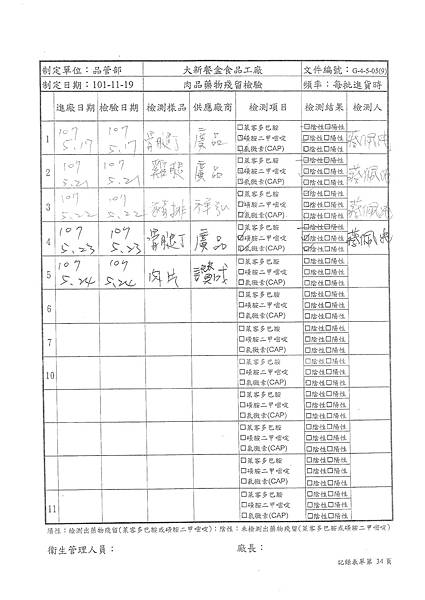 制定單位：品管部 大新餐盒食品工廠 文件編號：G-4-5-05(9)
制定日期：101-11-19 肉品藥物殘留檢驗 頻率：每批進貨時
進廠日期 檢驗日期 檢測樣品 供應廠商 檢測項目 檢測結果 檢測人
1 107 5.17 107 5.17 骨腿丁 廣品 □萊客多巴胺 □陰性□陽性
□磺胺二甲嘧啶 □陰性□陽性
□氯黴素(CAP) □陰性□陽性
2 107 5.21 107 5.21 雞腿 廣品 □萊客多巴胺 □陰性□陽性
□磺胺二甲嘧啶 □陰性□陽性
□氯黴素(CAP) □陰性□陽性
3 107 5.22 107 5.22 豬排 祥弘 □萊客多巴胺 □陰性□陽性
□磺胺二甲嘧啶 □陰性□陽性
□氯黴素(CAP) □陰性□陽性
4 107 5.23 107 5.23 骨腿丁 廣品 □萊客多巴胺 □陰性□陽性
□磺胺二甲嘧啶 □陰性□陽性
□氯黴素(CAP) □陰性□陽性
5 107 5.24 107 5.24 肉片 讚成 □萊客多巴胺 □陰性□陽性
□磺胺二甲嘧啶 □陰性□陽性
□氯黴素(CAP) □陰性□陽性
6 □萊客多巴胺 □陰性□陽性
□磺胺二甲嘧啶 □陰性□陽性
□氯黴素(CAP) □陰性□陽性
7 □萊客多巴胺 □陰性□陽性
□磺胺二甲嘧啶 □陰性□陽性
□氯黴素(CAP) □陰性□陽性
10 □萊客多巴胺 □陰性□陽性
□磺胺二甲嘧啶 □陰性□陽性
□氯黴素(CAP) □陰性□陽性
□萊客多巴胺 □陰性□陽性
□磺胺二甲嘧啶 □陰性□陽性
□氯黴素(CAP) □陰性□陽性
□萊客多巴胺 □陰性□陽性
□磺胺二甲嘧啶 □陰性□陽性
□氯黴素(CAP) □陰性□陽性
□萊客多巴胺 □陰性□陽性
□磺胺二甲嘧啶 □陰性□陽性
□氯黴素(CAP) □陰性□陽性
11 □萊客多巴胺 □陰性□陽性
□磺胺二甲嘧啶 □陰性□陽性
□氯黴素(CAP) □陰性□陽性
陽性：檢測出藥物殘留(萊客多巴胺或磺胺二甲嘧啶)；陰性：未檢測出藥物殘留(萊客多巴胺或磺胺二甲嘧啶)
衛生管理人員： 廠長：
記錄表單第 34 頁